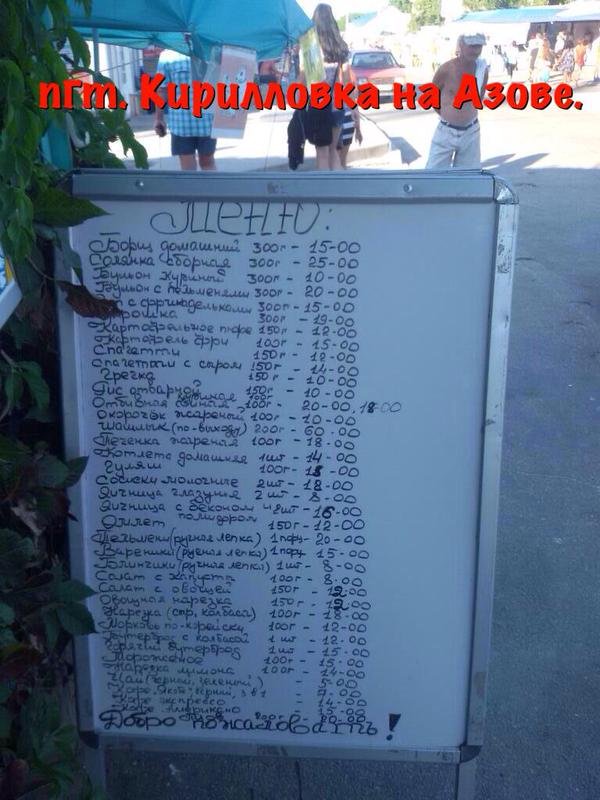 пгт. Кирилловка на Азове.
Меню:
Борщ домашний 300г - 15-00
Солянка сборная 300г - 25-00
Бульон куриный 300г - 10-00
Бульон с пельменями 300г - 20-00
с фрикадельками 300г - 15-00
Окрошка 300г - 19-00
Картофельное пюре 150г - 12-00
Картофель фри 100г - 15-00
Спагетти 150г - 12-00
Спагетти с сыром 150г - 14-00
Гречка 150г - 10-00
Рис отварной 150г - 10-00
Отбивная свиная 100г - 20-00, 18-00
Окорочёк жареный 100г - 10-00
Шашлык (по-выходу) 200г - 60-00
Печенка жареная 100г - 18-00
Котлета домашняя 1шт - 14-00
Гуляш 100г - 18-00
Сосиски молочные 2шт - 18-00
Яичница глазунья 2шт - 8-00
Яичница с беконом 2шт - 16-00
помидором
Омлет 150г - 12-00
Пельмени (ручная лепка) 1порц - 20-00
Вареники (ручная лепка) 1порц - 15-00
Блинчики (ручная лепка) 1шт - 8-00
Салат с капусты 100г - 8-00
Салат с овощей 150г - 12-00
Овощная нарезка 150г - 12-00
Нарезка (сыр, колбаса) 100г - 18-00
Морковь по-корейски 100г - 12-00
Бутерброд с колбасой 1шт - 12-00
Горячий бутерброд 1шт - 15-00
Мороженое 100г - 15-00
Нарезка лимона 100г - 14-00
Чай (черный, зеленый) - 5-00
Кофе черный, 3 в 1 - 7-00
Кофе экспрессо - 14-00
Кофе Американо - 15-00
200г - 20-00
Добро пожаловать!